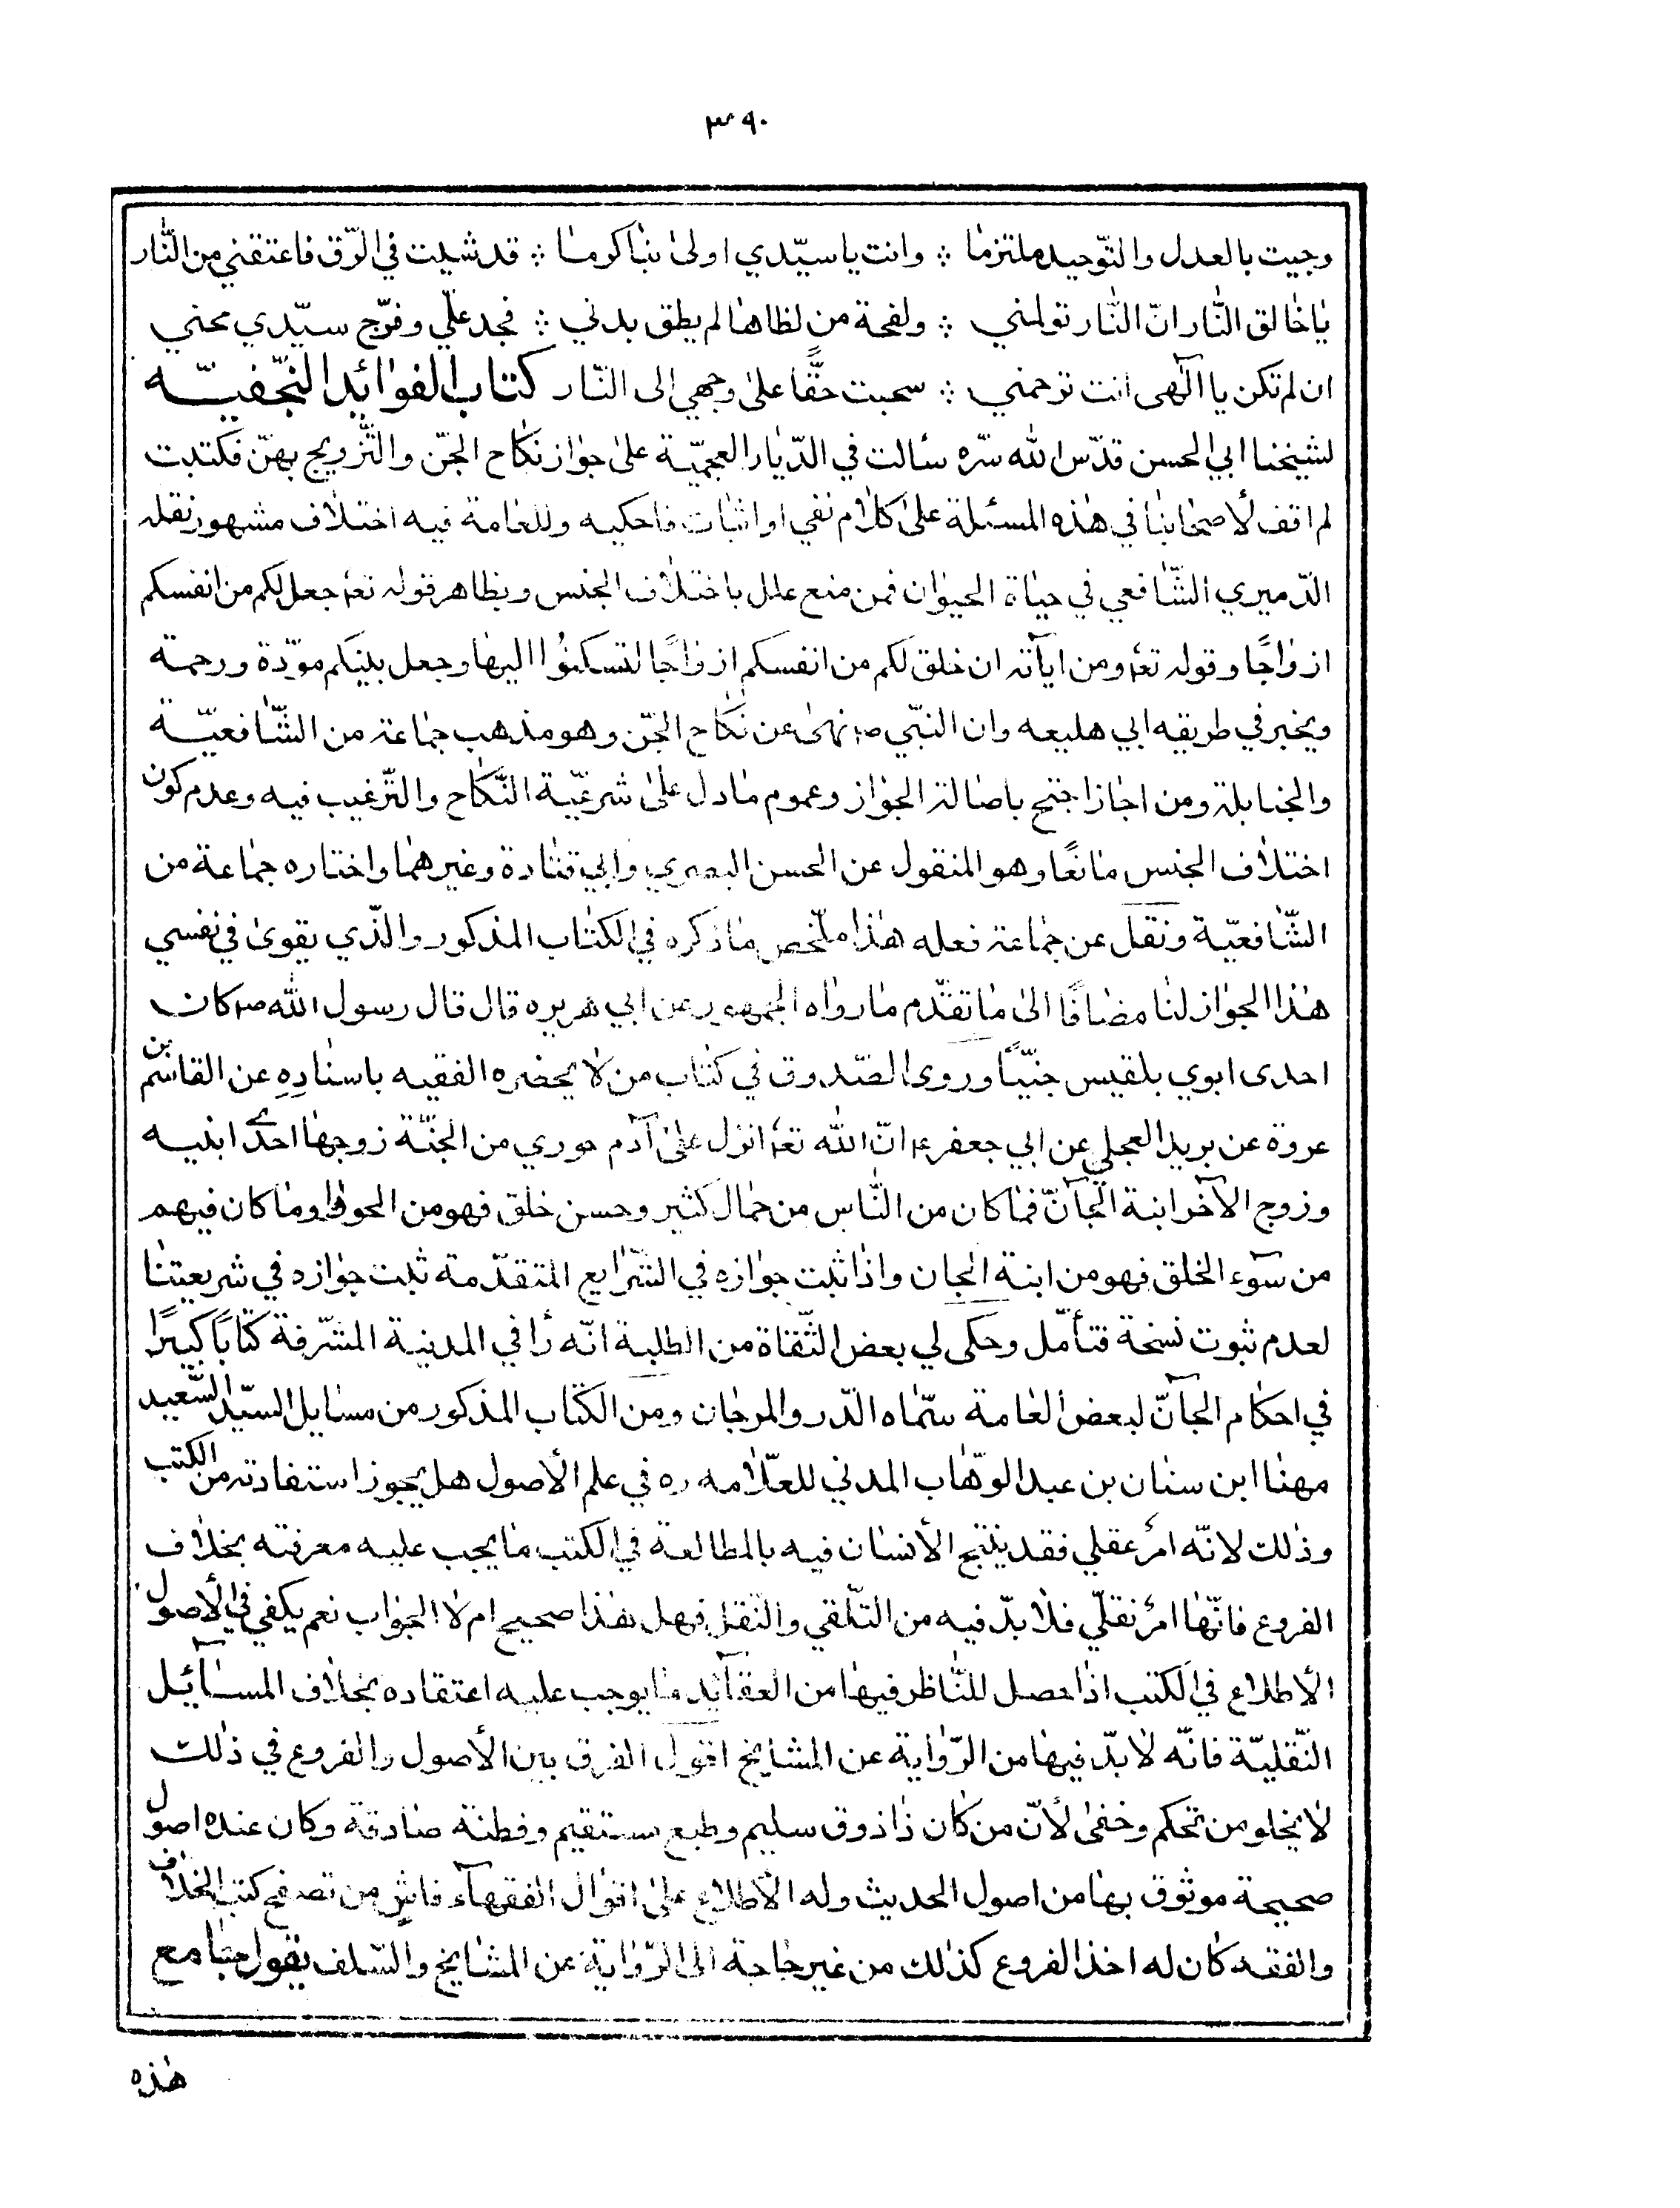 ٣٩٠
وجيت بالعدل والتّوحيد ملتزما ∴ وانت يا سيّدي اولى بنا كرما ∴ قد شيبت في الرّق فاعتقني من النّار
يا خالق النّار انّ النّار تولمني ∴ ولفحة من لظاها لم يطق بدني ∴ فجد علّي وفرّج سيّدي محني
ان لم تكن يا الٓهى انت ترحمني ∴ سحبت حقًّا على وجهي الى النّار كتاب الفوائد النّجفيّه
لشيخنا ابي الحسن قدّس الله سّره سألت في الدّيار العجميّة على جواز نكاح الجّن والتّزويج بهنّ فكتبت
لم اقف لأصحابنا في هذه المسئلة على كلام نفي او اثبات فاحكيه وللعامة فيه اختلاف مشهور نقله
الدّميري الشّافعي في حياة الحيوان فمن منع علل باختلاف الجنس وبظاهر قوله تعہ جعل لكم من انفسكم
ازواجًا وقوله تعہ ومن اياته ان خلق لكم من انفسكم ازواجًا لتسكنوُا اليها وجعل بينكم موّدة ورحمة
وبخبر في طريقه ابي هليعه وان النبّي صہ نهى عن نكاح الجّن وهو مذهب جماعة من الشّافعيّة
والحنابلة ومن اجاز احتج باصالة الجواز وعموم ما دل على شرعيّة النّكاح والتّرغيب فيه وعدم كون
اختلاف الجنس مانعًا وهو المنقول عن الحسن البصري وابي قتادة وغيرهما واختاره جماعة من
الشّافعيّة ونقل عن جماعة فعله هذا ملّخص ما ذكره في الكتاب المذكور والّذي يقوى في نفسي
هذا الجواز لنا مضافًا الى ما تقدّم ما رواه الجمهور عن ابي هريره قال قال رسول الله صہ كان
احدى ابوي بلقيس جنّيًا وروى الصّدوق في كتاب من لا يحضره الفقيه باسنادِهِ عن القاسم بن
عروة عن بريد العجلي عن ابي جعفر عہ انّ الله تعہ انزل على آدم حوري من الجنّة زوجها احدى ابنيه
وزوج الآخر ابنة الجآنّ فما كان من النّاس من جمال كثير وحسن خلق فهو من الحورا وما كان فيهم
من سوٓء الخلق فهو من ابنة الجان واذا ثبت جوازه في الشّرايع المتقدّمة ثبت جوازه في شريعتنا
لعدم ثبوت نسخة فتأمّل وحكى لي بعض الثّقاة من الطلبة انّه رأ في المدنية المشّرفة كتابًا كبيرًا
في احكام الجآنّ لبعض العامة سمّاه الدّر والمرجان ومن الكتاب المذكور من مسايل السيّد السّعيد
مهنا ابن سنان بن عبد الوهّاب المدني للعلّامه ره في علم الأصول هل يجوز استفادته من الكتب
وذلك لانّه امرٌ عقلي فقد ينتج الأنسان فيه بالمطالعة في الكتب ما يجب عليه معرفته بخلاف
الفروع فانّها امرٌ نقلّي فلا بدّ فيه من التّلقي والنّقل فهل هذا صحيح ام لا الجواب نعم يكفي في الأصول
الأطلاع في الكتب اذا حصل للنّاظر فيها من العقآئد ما يوجب عليه اعتقاده بخلاف المسآئيل
النّقليّة فانّه لا بدّ فيها من الرّواية عن المشايخ اقول الفرق بين الأصول والفروع في ذلك
لا يخلو من تحكم وخفى لأنّ من كان ذا ذوق سليم وطبع مستقيم وفطنة صادقة وكان عنده اصول
صحيحة موثوق بها من اصول الحديث وله الأطلاع على اقوال الفقهآء فاشٍ من تصفح كتب الخلاف
والفقه كان له اخذ الفروع كذلك من غير حاجة الى الرّواية عن المشايخ والسّلف يقول جامع
هذه